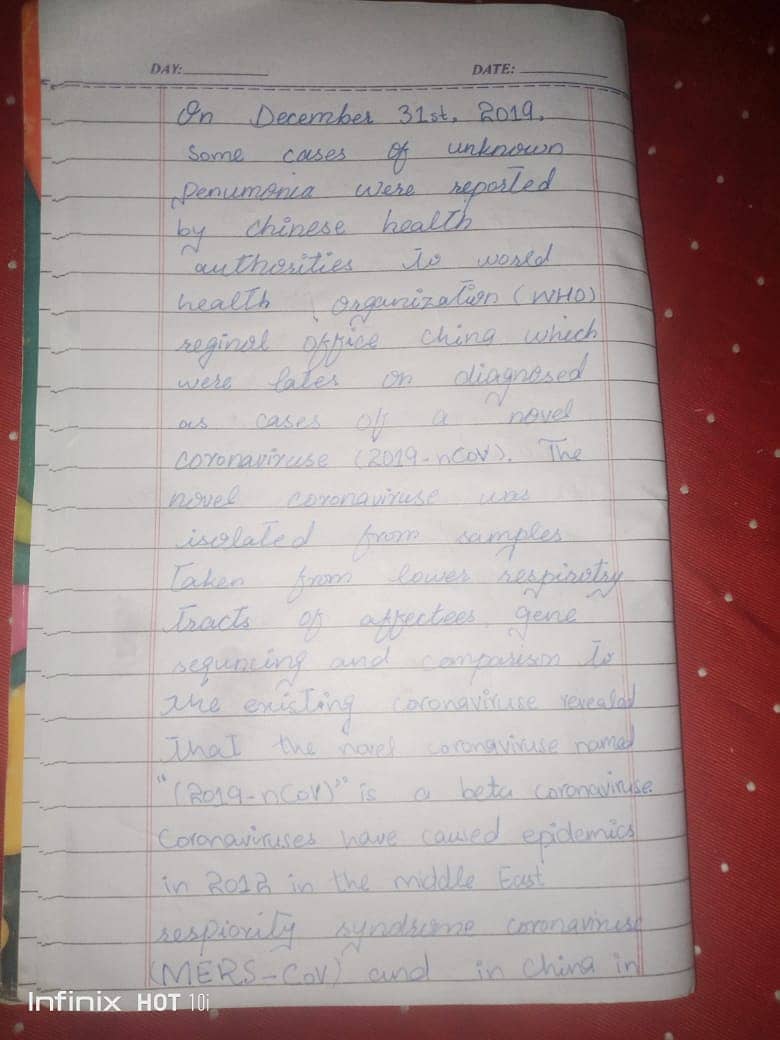 DAY: DATE:
On December 31st, 2019,
Some cases of unknown
penumonia were reported
by chinese health
authorities to world
health organization (WHO)
reginol office china which
were later on diagnosed
as cases of a novel
coronaviruse (2019-nCoV). The
novel coronaviruse was
isolated from samples
taken from lower respirotry
tracts of affectees. gene
sequncing and comparison to
the existing coronaviruse revealed
that the novel coronaviruse named
"(2019-nCoV)" is a beta coronaviruse.
Coronaviruses have caused epidemics
in 2012 in the middle East
respiority syndrome coronaviruse
(MERS-CoV) and in China in
Infinix HOT 10i